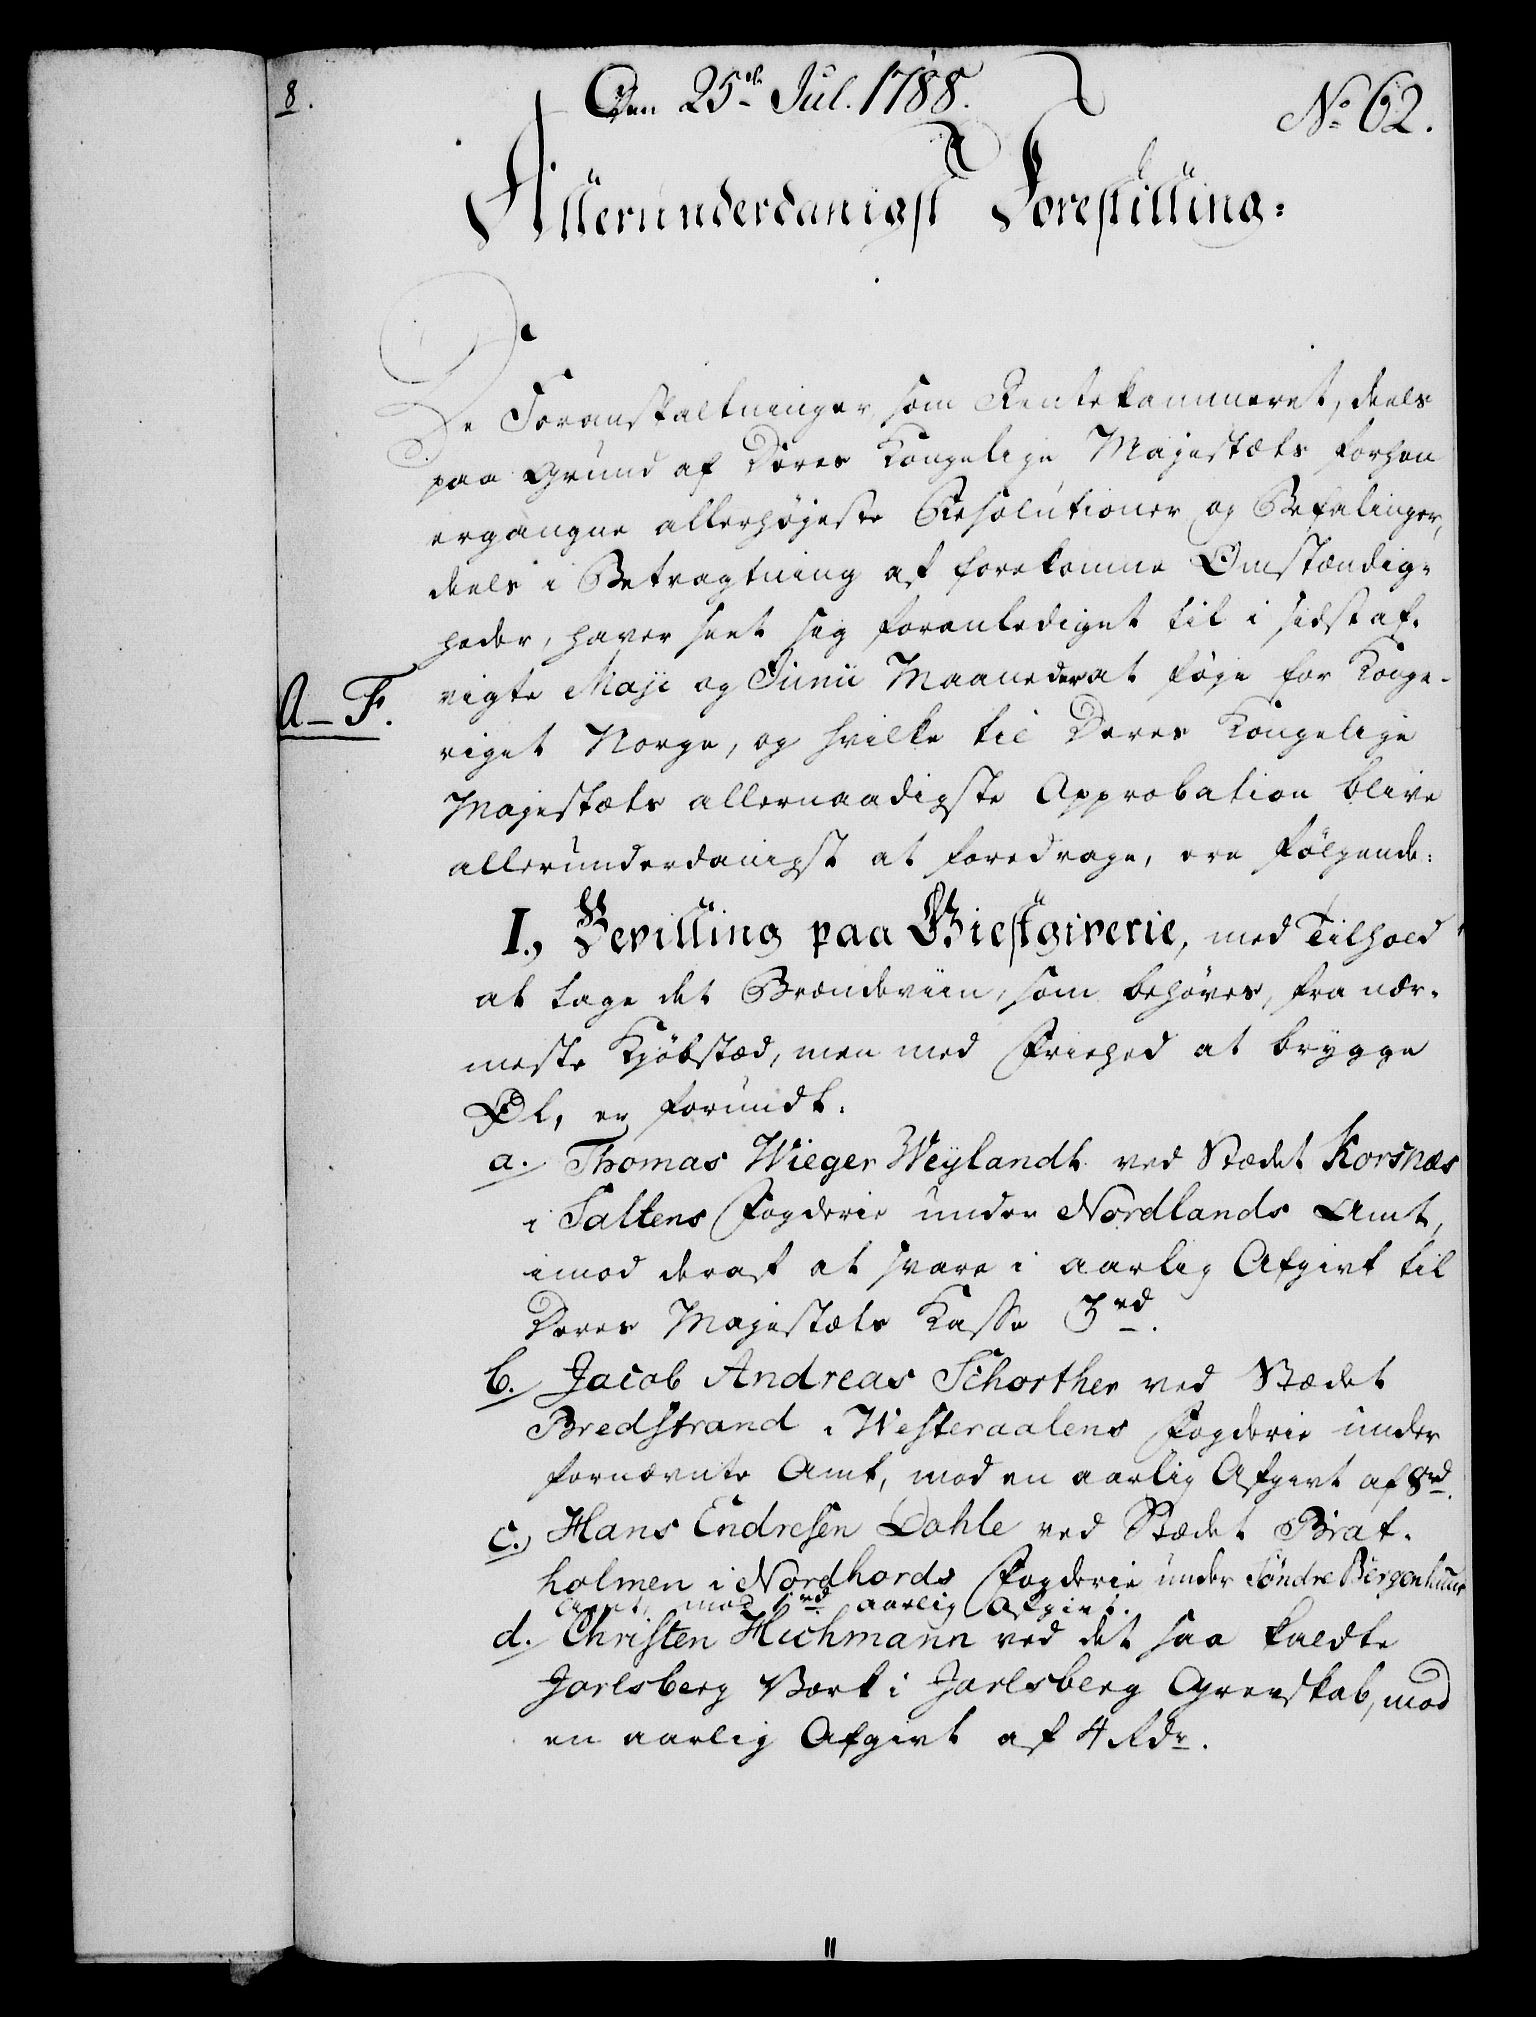 8.
Den 25de Jul. 1788.
No 62.
Allerunderdanigst Forestilling.
De Foranstaltninger, som Rentekammeret, deels
paa Grund af Deres Kongelige Majestæts forhen
ergangne allerhøjeste Resolutioner og Befalinger,
deels i Betragtning af forekomne Omstændig-
heder, haver seet sig foranlediget til i sidst af-
vigte Maji og Junii Maaneder at føje for Konge-
A - F.
riget Norge, og hvilke til Deres Kongelige
Majestæts allernaadigste Approbation blive
allerunderdanigst at foredrage, ere følgende:
I., Bevilling paa Giestgiverie, med Tilhold
at tage det Brændeviin, som behøves, fra nær-
meste Kjøbstæd, men med Friehed at brygge
Øl, er forundt:
a. Thomas Wieger Weylandt ved Stædet Korsnæs
i Saltens Fogderie under Nordlands Amt,
imod deraf at svare i aarlig Afgivt til
Deres Majestæts Kasse 3 rd.
b. Jacob Andreas Schorther ved Stædet
Bredstrand i Westeraalens Fogderie under
fornævnte Amt, mod en aarlig Afgivt af 8 rd.
c., Hans Endresen Dahle ved Stædet Brat-
holmen i Nordhords Fogderie under Søndre Bergenhuus
Amt, mod 1 rd aarlig Afgivt.
d. Christen Hichmann ved det saa kaldte
Jarlsberg Værk i Jarlsberg Grevskab, mod
en aarlig Afgivt af 4 Rdr.